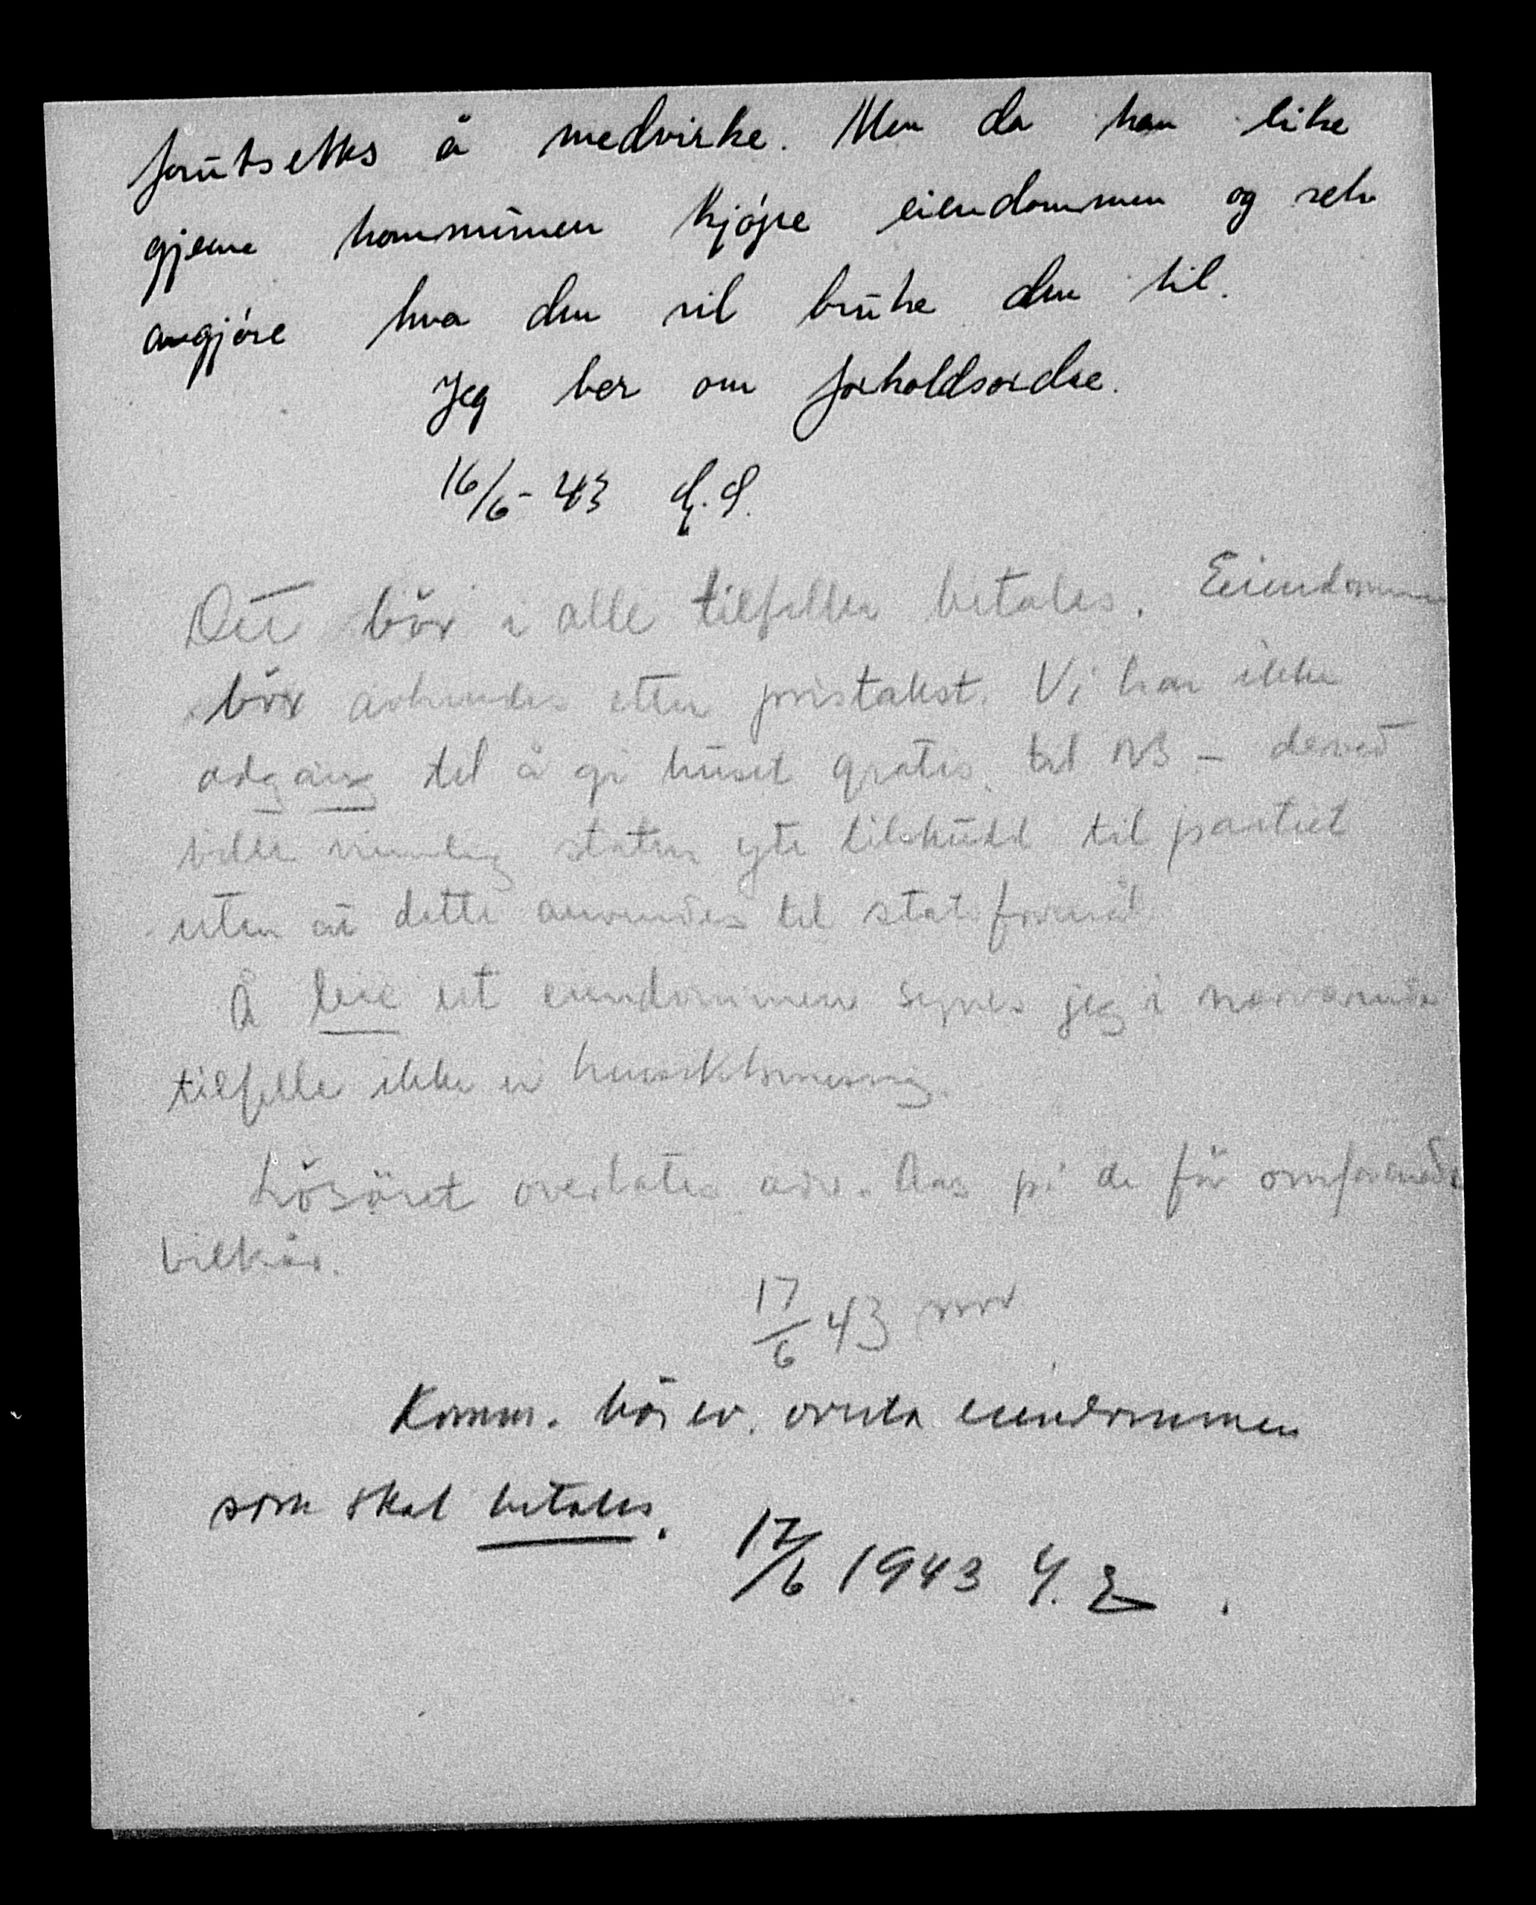 forutsettes å medvirke. Men da kan like
gjerne kommunen kjøpe eiendommen og selv
avgjøre hva den vil bruke den til.
Jeg ber om forholdsordre.
16/6-43
Det bör i alle tilfeller betales. Eiendommen
bör avhendes etter pristakst. Vi har ikke
adgang til å gi huset gratis til NS - derved
ville nemlig staten yte tilskudd til partiet
uten at dette anvendes til statsformål
Å leie ut eiendommen synes jeg i nærværende
tilfelle ikke er hensiktsmessig.
Lösöret overlates adv. Aas på de för omforenede
vilkår.
17/6 43
Komm. bör ev. overta eiendommen
som skal betales.
17/6 1943